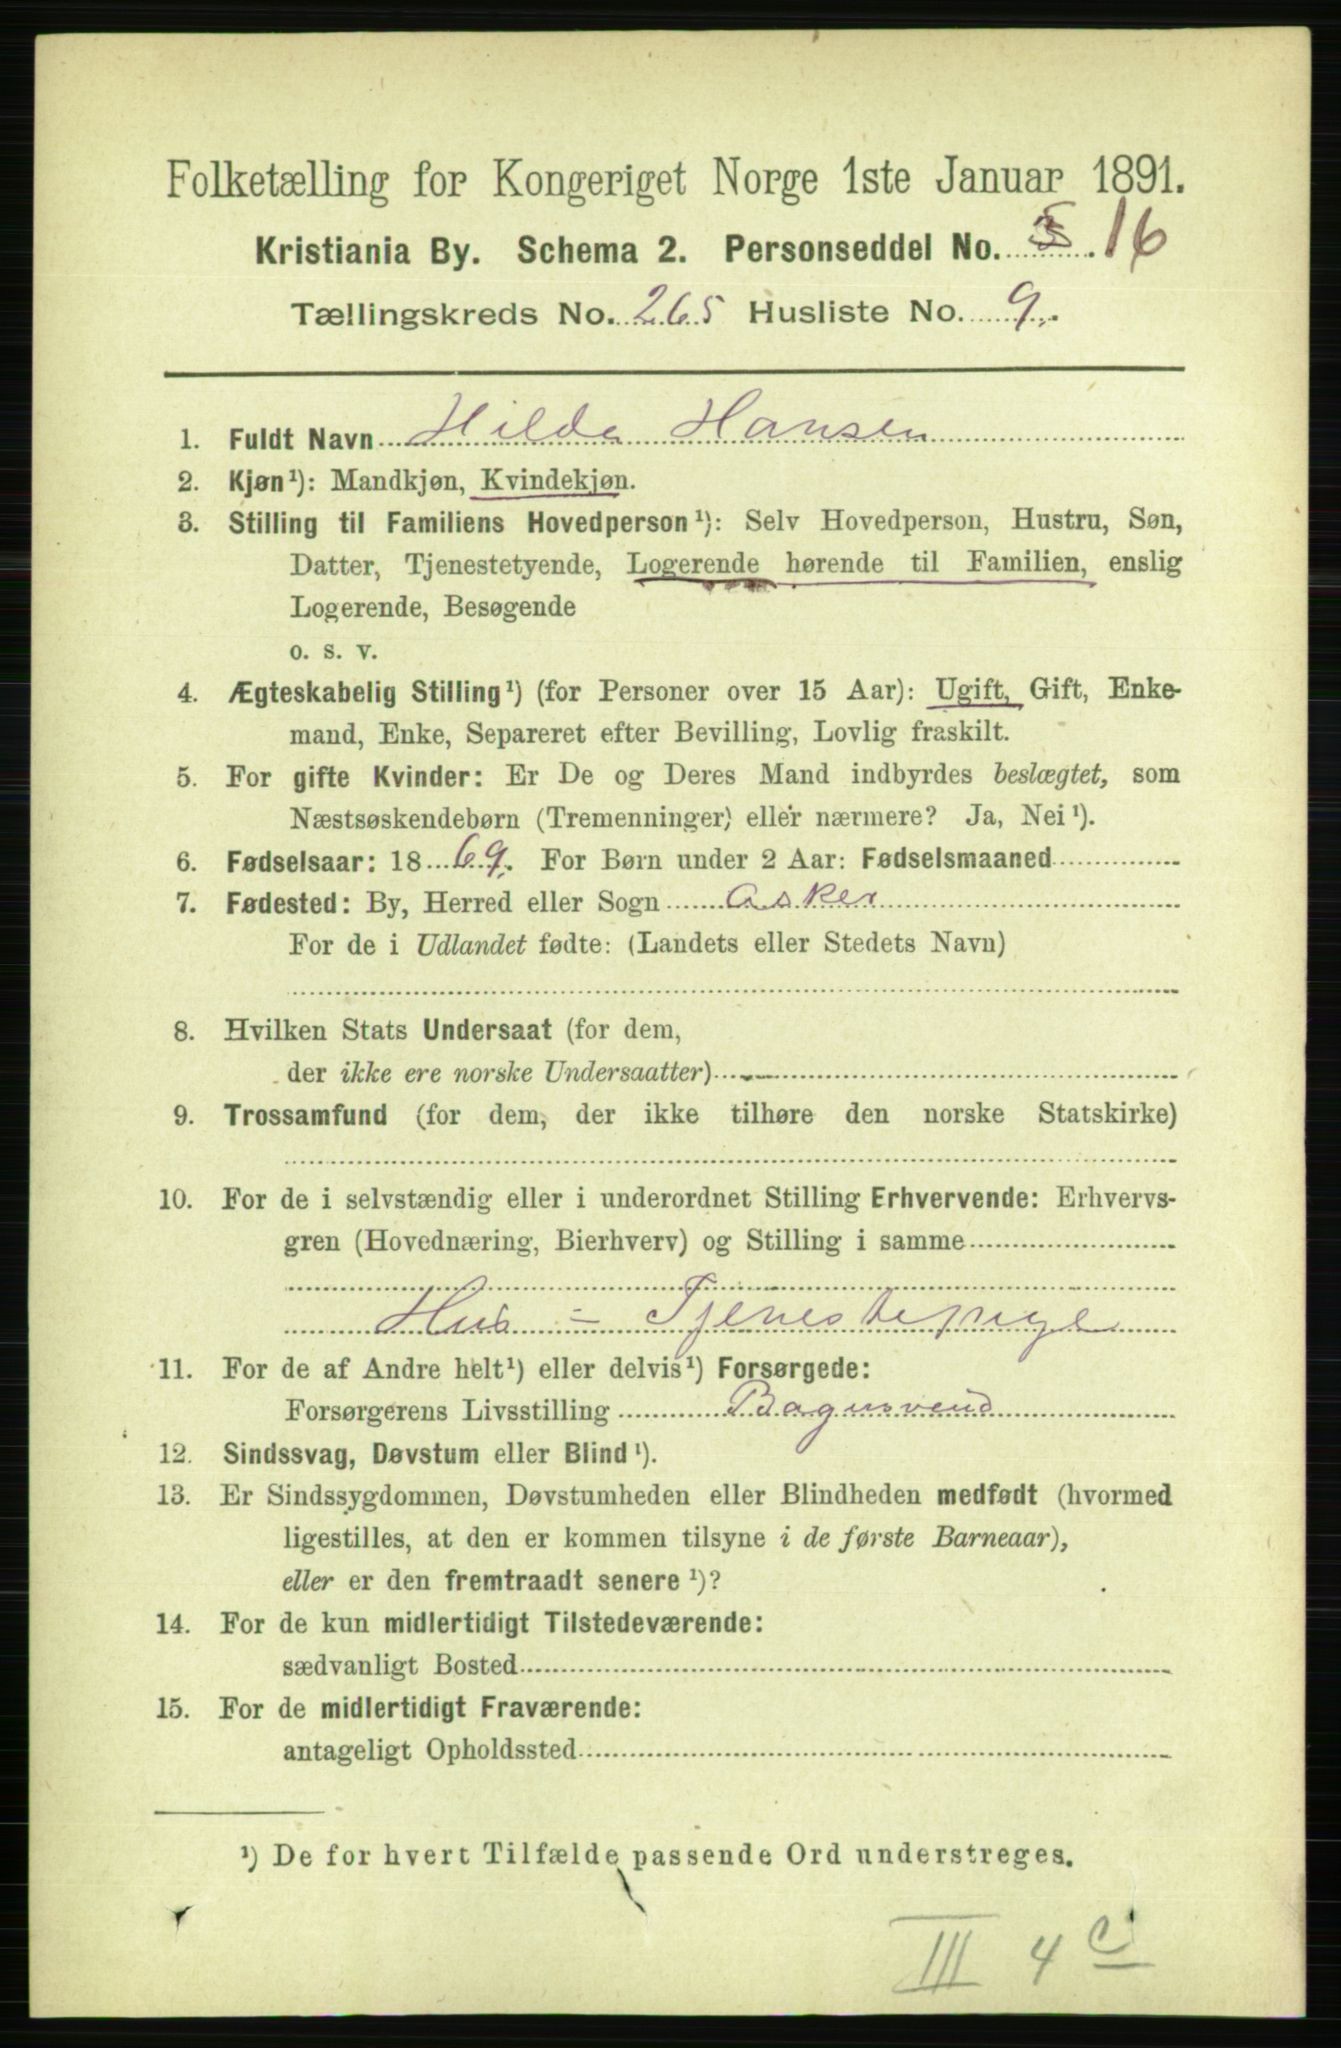 Folketælling for Kongeriget Norge 1ste Januar 1891.
Kristiania By. Schema 2. Personseddel No. 16
Tællingskreds No. 265 Husliste No. 9.
1. Fuldt Navn Hilda Hansen
2. Kjøn¹): Mandkjøn, Kvindekjøn.
3. Stilling til Familiens Hovedperson¹): Selv Hovedperson, Hustru, Søn,
Datter, Tjenestetyende, Logerende hørende til Familien, enslig
Logerende, Besøgende
o. s. v.
4. Ægteskabelig Stilling¹) (for Personer over 15 Aar): Ugift, Gift, Enke-
mand, Enke, Separeret efter Bevilling, Lovlig fraskilt.
5. For gifte Kvinder: Er De og Deres Mand indbyrdes beslægtet, som
Næstsøskendebørn (Tremenninger) eller nærmere? Ja, Nei¹).
6. Fødselsaar: 1869. For Børn under 2 Aar: Fødselsmaaned
7. Fødested: By, Herred eller Sogn Asker
For de i Udlandet fødte: (Landets eller Stedets Navn)
8. Hvilken Stats Undersaat (for dem,
der ikke ere norske Undersaatter)
9. Trossamfund (for dem, der ikke tilhøre den norske Statskirke)
10. For de i selvstændig eller i underordnet Stilling Erhvervende: Erhvervs-
gren (Hovednæring, Bierhverv) og Stilling i samme
Hus - Tjenestepige
11. For de af Andre helt¹) eller delvis¹) Forsørgede:
Forsørgerens Livsstilling Bagersvend
12. Sindssvag, Døvstum eller Blind¹).
13. Er Sindssygdommen, Døvstumheden eller Blindheden medfødt (hvormed
ligestilles, at den er kommen tilsyne i de første Barneaar),
eller er den fremtraadt senere¹)?
14. For de kun midlertidigt Tilstedeværende:
sædvanligt Bosted
15. For de midlertidigt Fraværende:
antageligt Opholdssted
¹) De for hvert Tilfælde passende Ord understreges.
III 4 c